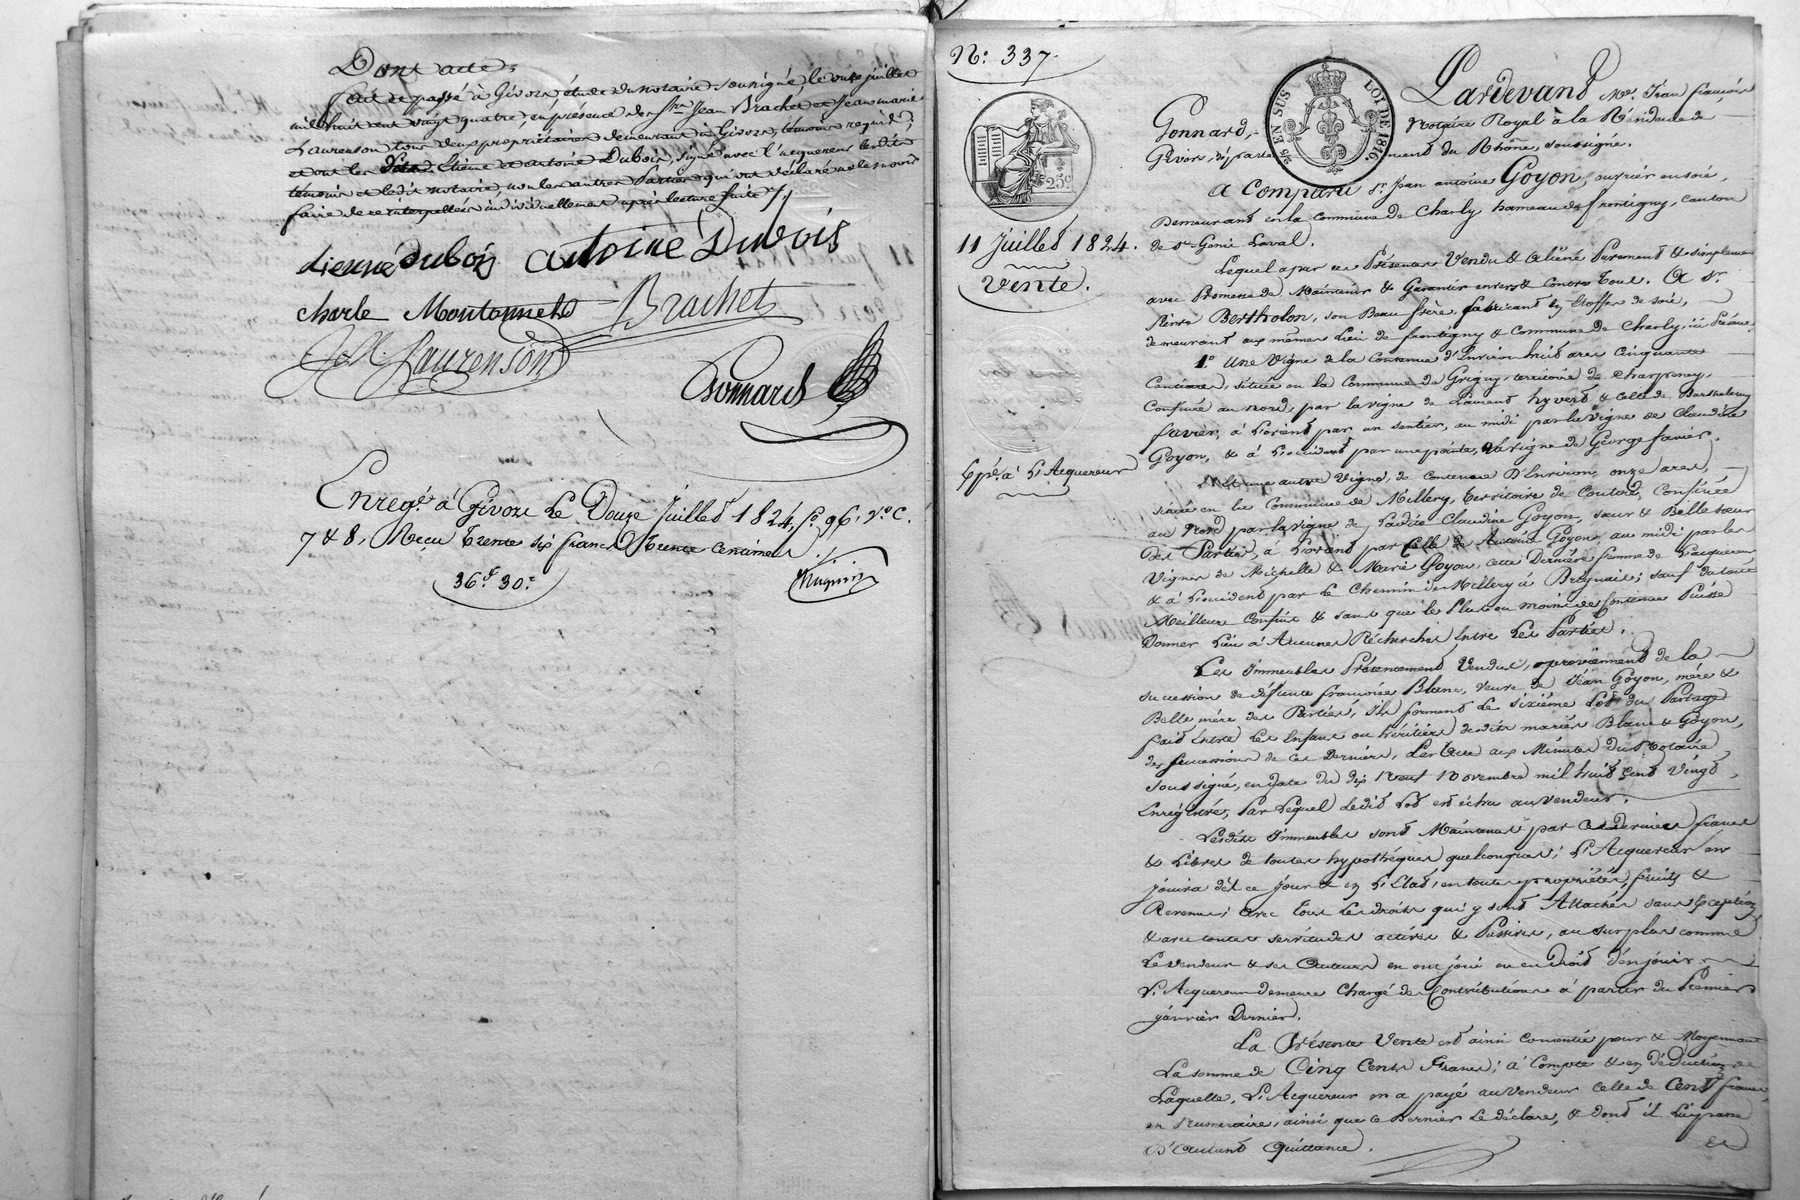 Dont acte,
fait et passé à Givors, étude du notaire soussigné, le onze juillet
mil huit cent vingt quatre, en présence de srs Jean Brachet et Jean marie
Laurenson tous deux propriétaires demeurant à Givors, témoins requis,
et ont les Etienne et antoine Dubois, signé avec l'acquereur lesdits
témoins et ledit notaire, non les autres Parties qui ont déclaré ne le savoir
faire de ce interpellées individuellement après lecture faite
etienne dubois antoine Dubois
charle Montonnet Brachet
J M Laurenson
Gonnard
Enregé à Givors Le Douze Juillet 1824, fo 96, vo C.
7 & 8, Reçu trente six francs trente centimes
36f 30c
No 337.
11 Juillet 1824.
Vente.
Expé à L'Acquereur
25c
25 EN SUS LOI DE 1816
Pardevant Me Jean françois
Gonnard, Notaire Royal à la Résidence de
Givors, département du Rhône, soussigné.
A Comparu sr Jean antoine Goyon, ouvrier en soie,
Demeurant en la commune de Charly, hameau de frontigny, canton
de st Genis Laval.
Lequel a par ces Présentes Vendu & aliéné Purement & simplement
avec Promesse de Maintenir & Garantir envers & Contre Tout. A sr
Pierre Bertholon, son Beau frère, fabricant en Etoffes de soie,
demeurant aux mêmes Lieu de frontigny & Commune de Charly, ici Présent
1o Une Vigne de la Contenue d'Environ huit ares Cinquante
Centiares, située en la Commune de Grigny, territoire de Charpenay,
Confinée au nord, par la vigne de Laurent hyvert & celle de Barthelemy
favier, à L'orient par un sentier, au midi par la vigne de Claudine
Goyon, & à L'occident par une pointe, & la vigne de George favier.
2o Et une autre Vigne, de contenue D'Environ onze ares,
située en la Commune de Millery, territoire de Coutod, Confinée
au Nord par la vigne de Ladite Claudine Goyon, sœur & Belle sœur
Des Parties, à L'orient par Celle de Antoine Goyon, au midi par les
Vignes de Michelle & Marie Goyon, cette Dernière femme de L'acquereur
& à L'occident par Le Chemin de Millery à Brignais; sauf de tous
Meilleurs Confins & sans que le Plus ou moins de Contenue Puisse
Donner Lieu à Aucunes Récherches Entre Les Parties.
Les Immeubles Présentement Vendus, proviennent de la
succession de défunte françoise Blanc, veuve de Jean Goyon, mère &
Belle mère des Parties; ils forment Le Sixième Lot du Partage
fait Entre Les Enfans ou héritiers desdits mariés Blanc & Goyon,
des successions de ces Derniers, Par Acte aux Minutes du Notaire
soussigné, en date du dix Neuf Novembre mil huit cent Vingt,
Enregistré, Par Lequel Ledit Lot est échu au vendeur.
Lesdits Immeubles sont Maintenus par Ce dernier francs
& Libres de toutes hypothèques quelconques; L'Acquereur en
jouira dès ce jour & en L'Etat, en toutes propriétés, fruits &
Revenus; avec Tous Les droits qui y sont Attachés sans Exception
& avec toutes servitudes actives & Passives, au surplus comme
Le Vendeur & ses Auteurs en ont joui ou eu Droit d'en jouir.
L'Acquereur demeure Chargé des Contributions à partir du Premier
janvier Dernier.
La Présente Vente est ainsi Consentie pour & Moyennant
La somme de Cinq Cents Francs; à Compte & en déduction de
Laquelle, L'Acquereur en a payé au vendeur celle de Cent francs
en Numéraire, ainsi que ce Dernier Le déclare, & dont il Lui passe
D'Autant Quittance.